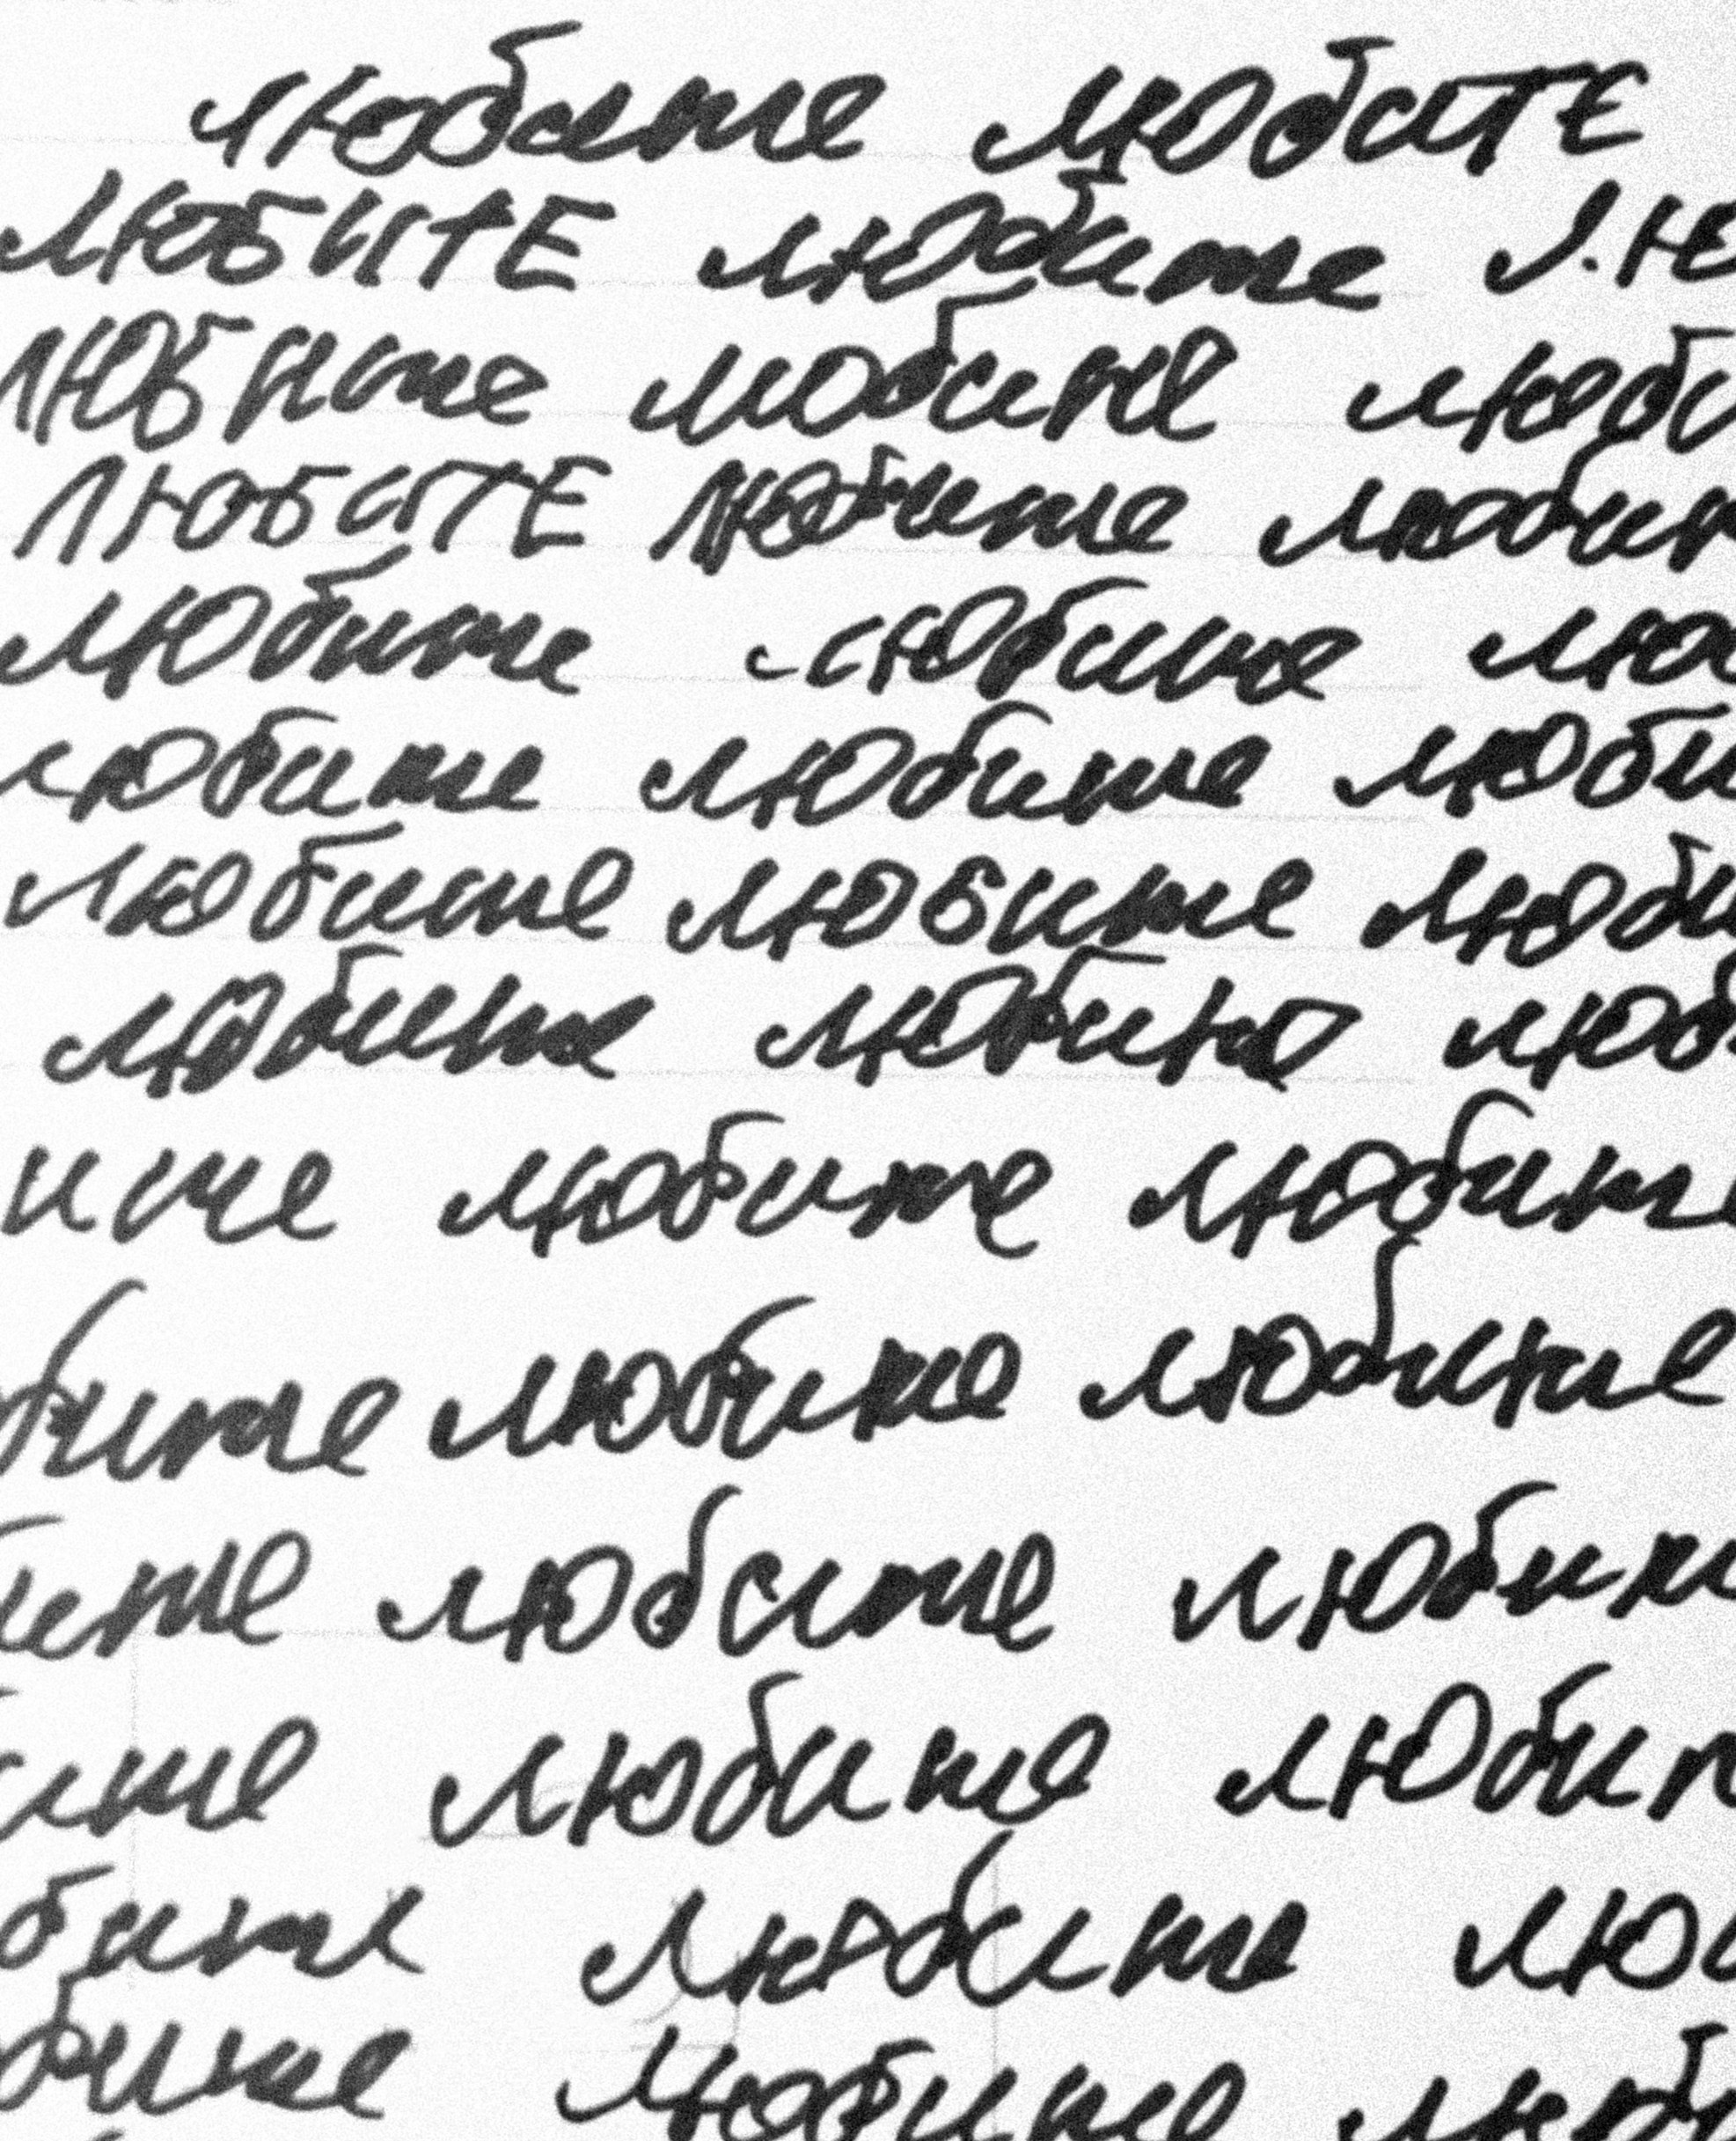 любите любитЕ
ЛЮБИТЕ любите Лю
ЛЮБите любите люби
ЛЮБИТЕ Любите любит
любите любите люб
любите любите люби
любите любите люби
любите любите люб
ите любите любите
бите любите любите
ите любите любит
ите любите любит
бите любите лю
бите любите люб